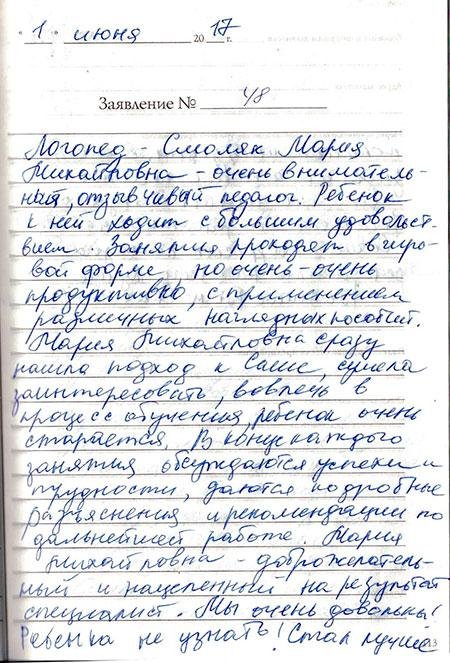 " 1 " июня 2017 г.
Заявление № 48
Логопед - Смоляк Мария
Михайловна - очень вниматель-
ный, отзывчивый педагог. Ребенок
к ней ходит с большим удовольст-
вием. Занятия проходят в игро-
вой форме, но очень-очень
продуктивно, с применением
различных наглядных пособий.
Мария Михайловна сразу
нашла подход к Саше, сумела
заинтересовать, вовлечь в
процесс обучения, ребенок очень
старается. В конце каждого
занятия обсуждаются успехи и
трудности, даются подробные
разъяснения и рекомендации по
дальнейшей работе. Мария
Михайловна - доброжелатель-
ный и нацеленный на результат
специалист. Мы очень довольны!
Ребенка не узнать! Стал лучше